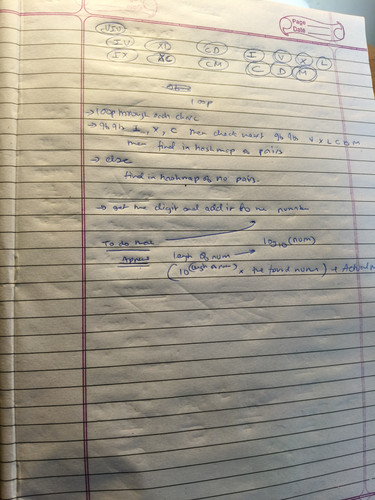 Page
Date
IV XD CD I V X L
IX XC CM C D M
Loop
→ loop through each char
→ If it's I, X, C then check next if it's V X L C D M
then find in hashmap of pairs
→ else
find in hashmap of no pairs.
→ get the digit and add it to the number
To do that
Append length of num → log10(num)
(10^(length of num) × the found number) +